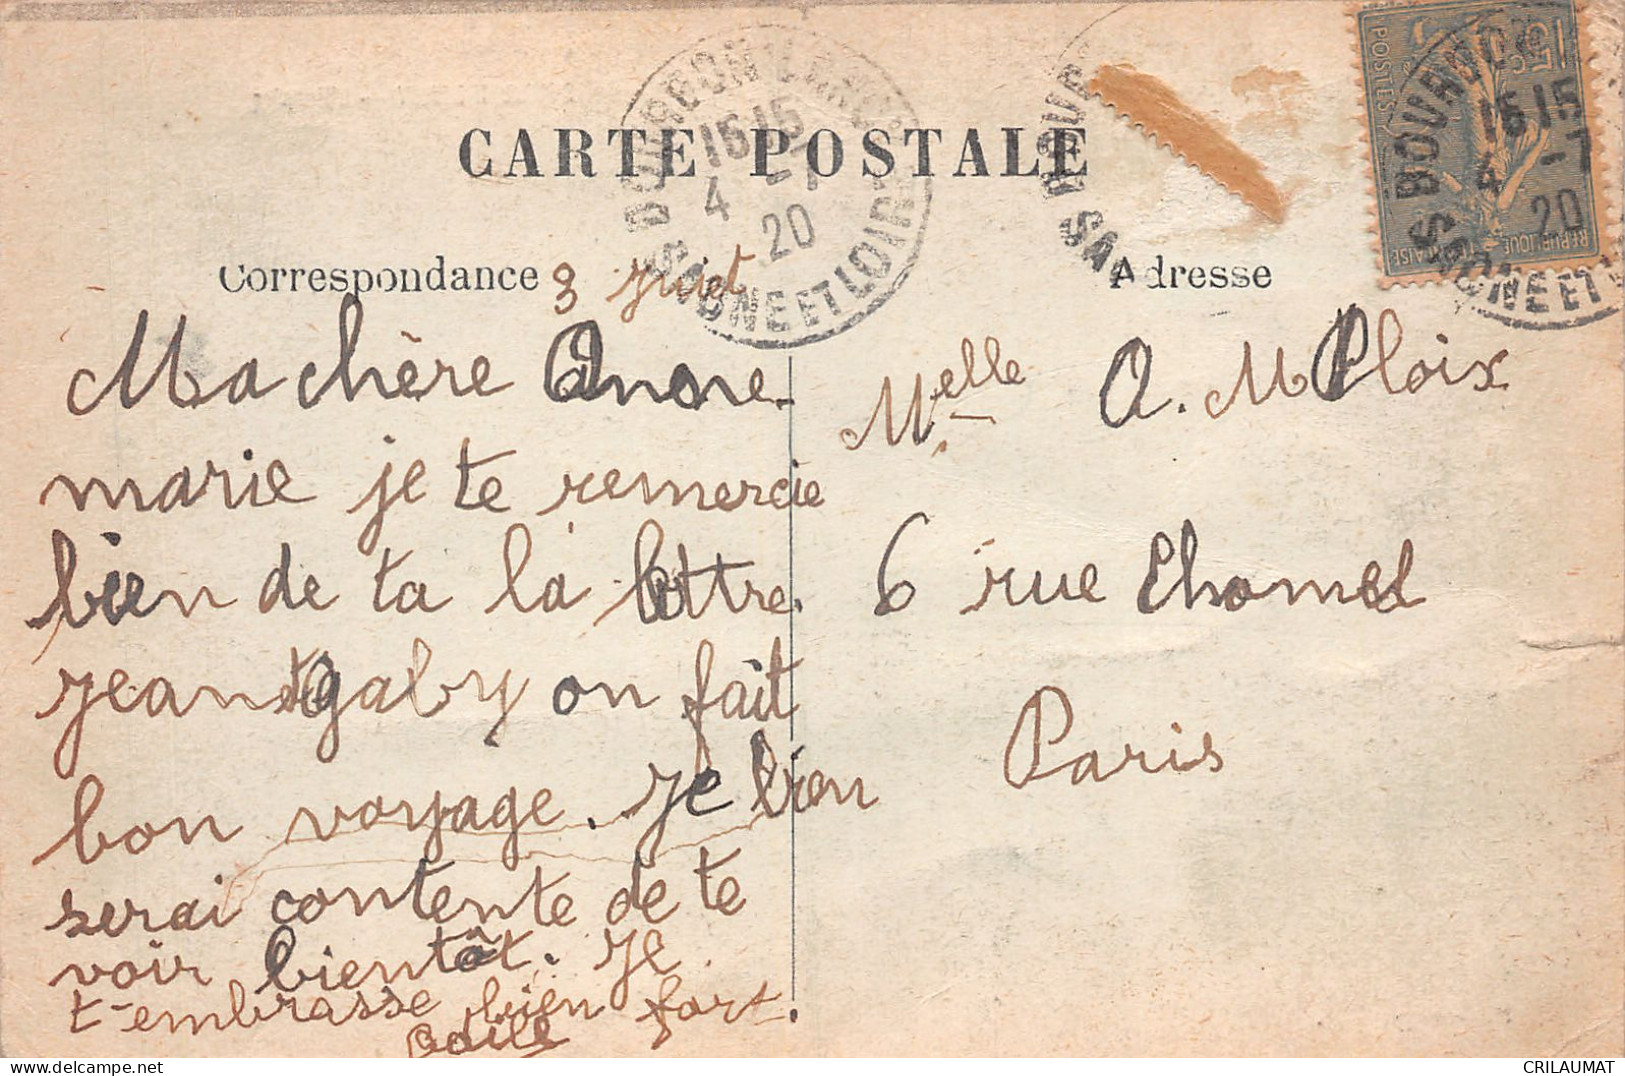 CARTE POSTALE
BOURBON LANCY
16 15
4 -7
20
SAONE ET LOIRE
15 c
POSTES
REPUBLIQUE FRANCAISE
BOURBON
16 15
4 -7
20
SAONE ET LOIRE
Correspondance
3 juiet
Ma chère Anne-
marie je te remercie
bien de ta la lettre.
jean et gaby on fait
bon voyage. je bien
serai contente de te
voir bientôt. je
t-embrasse bien fort.
Adresse
Melle A. M Ploix
6 rue Chomel
Paris
CRILAUMAT